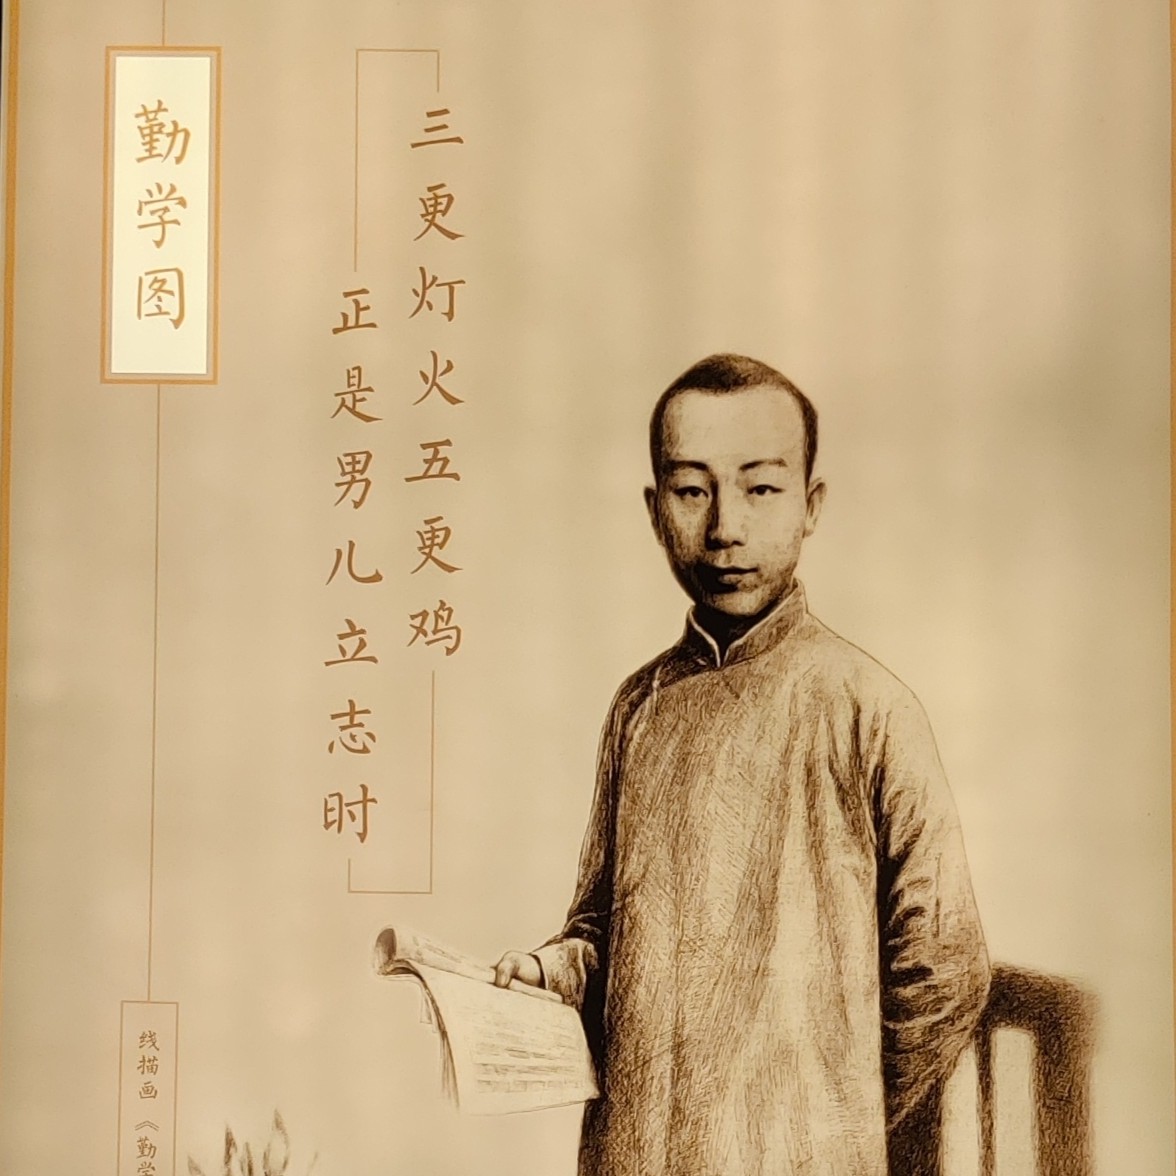 勤学图
三更灯火五更鸡
正是男儿立志时
线描画《勤学